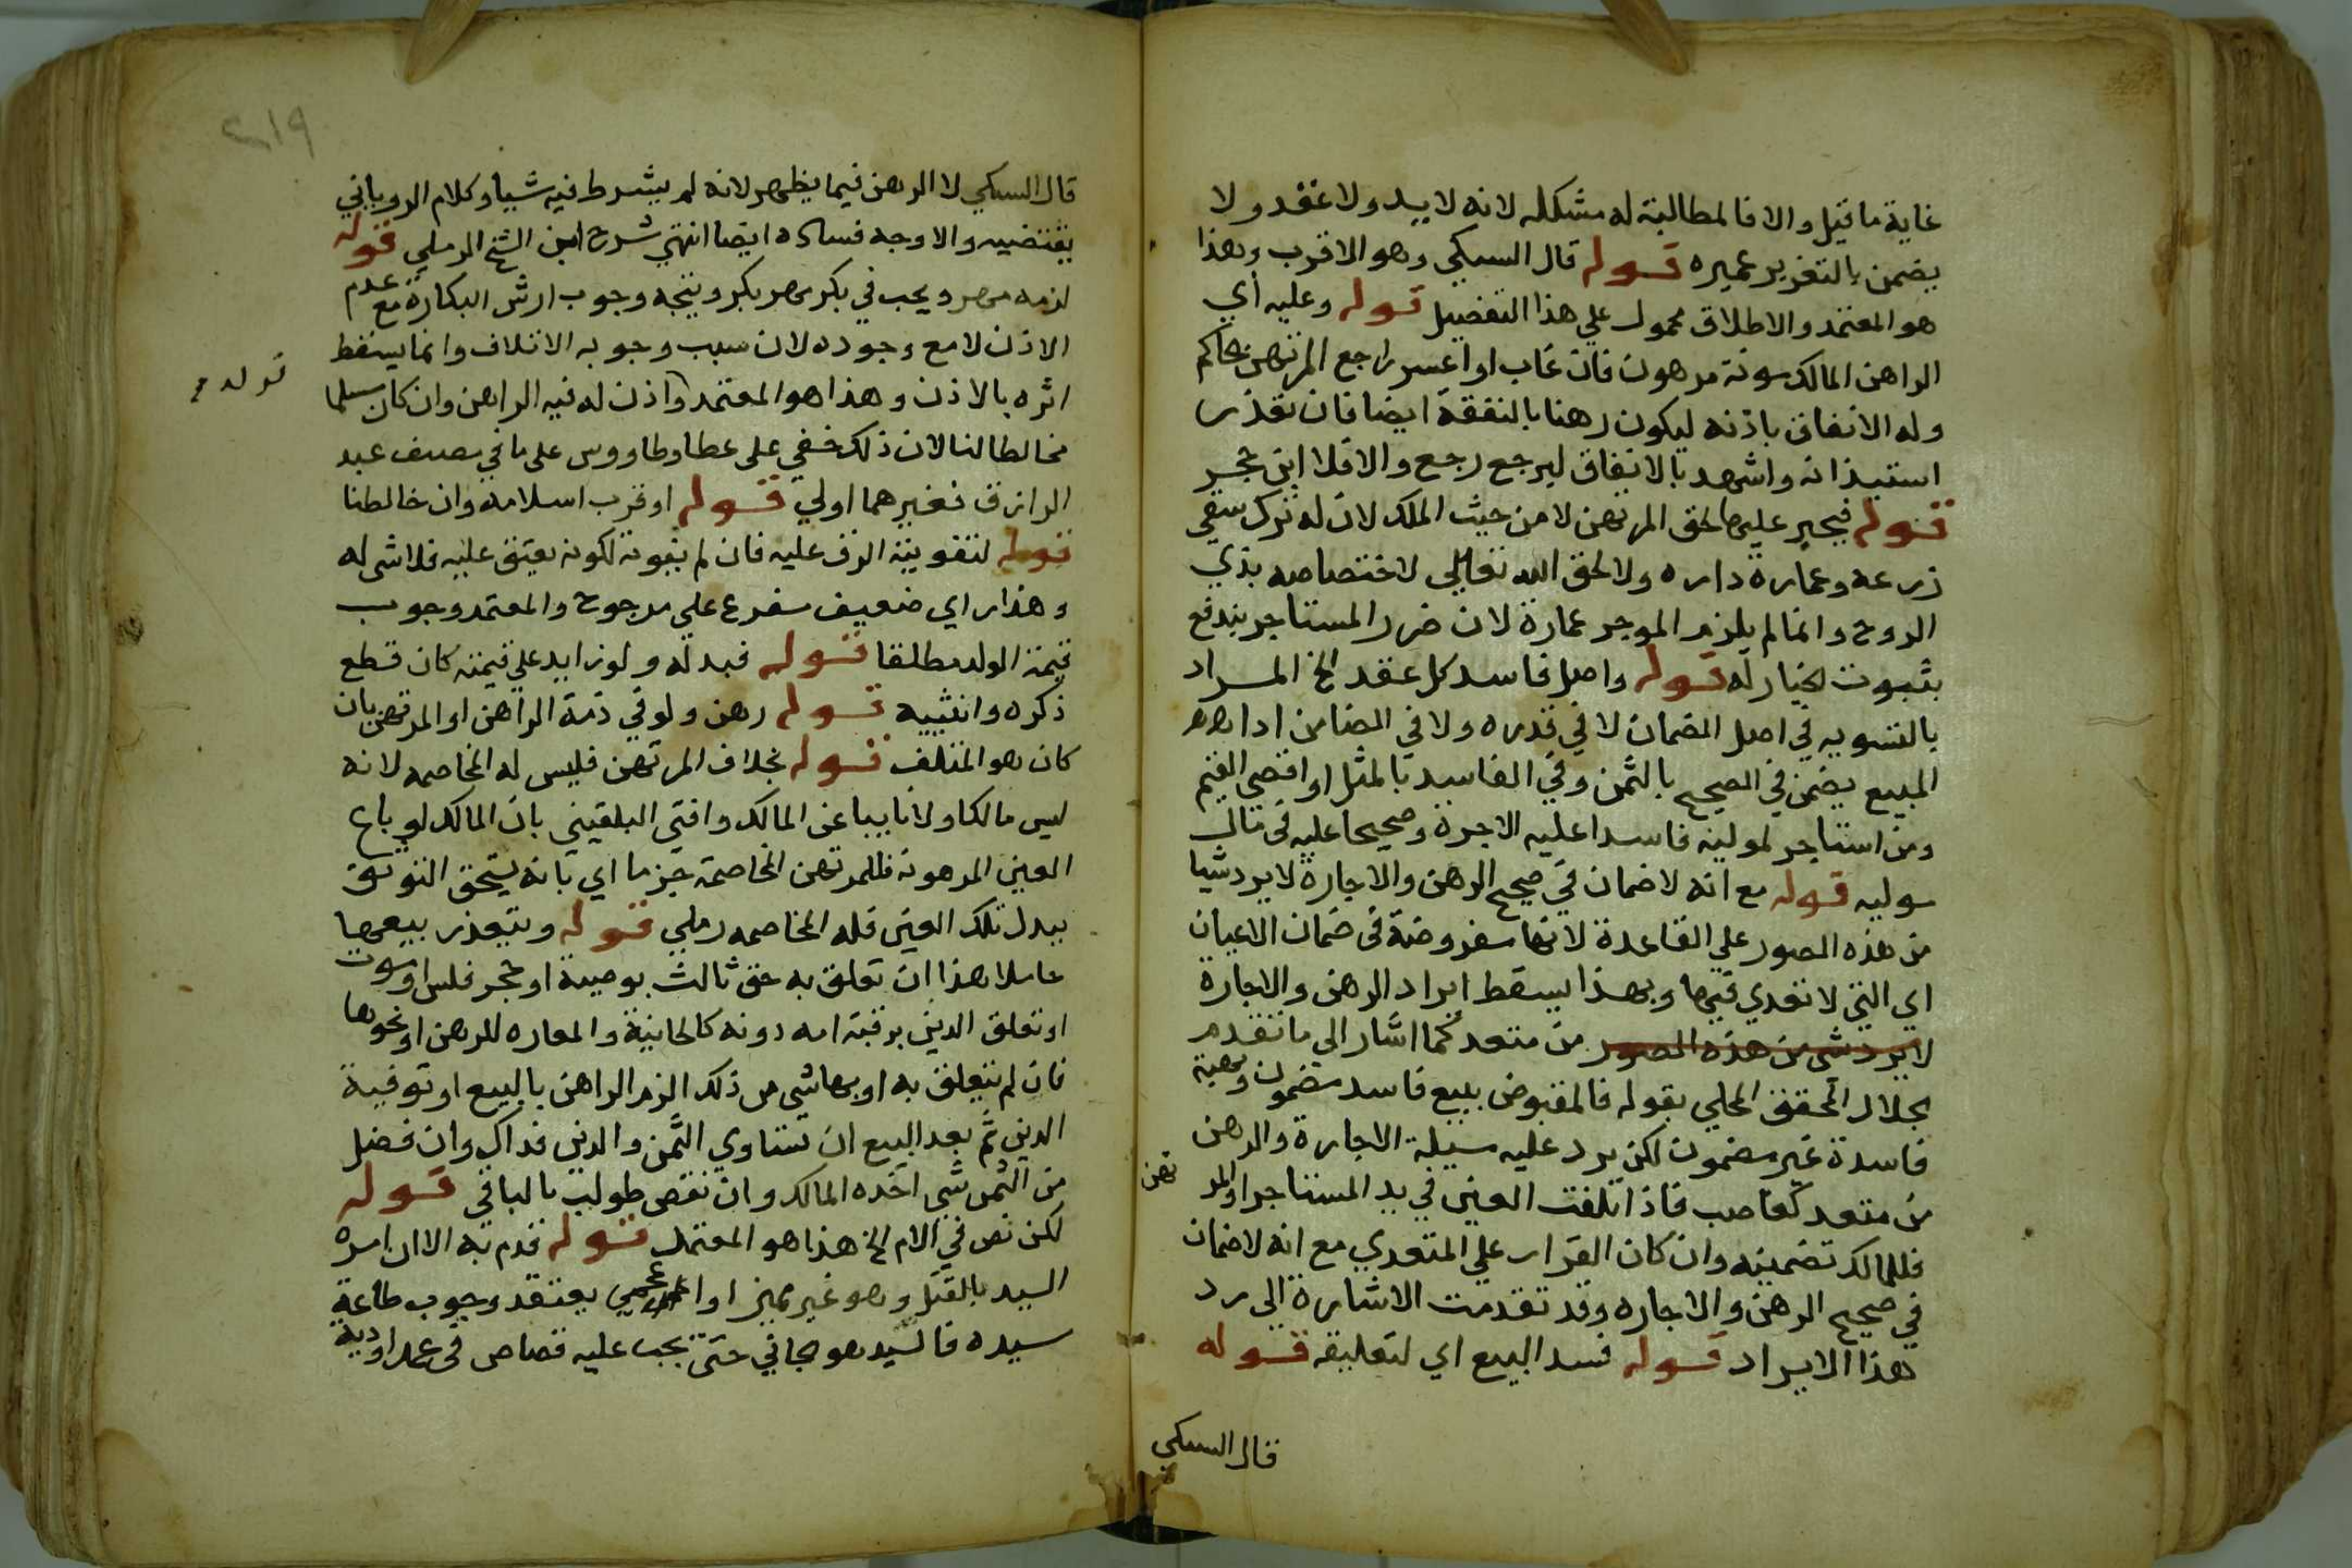 غاية ما قيل والا فالمطالبة له مشكله لانه لا يد ولا عقد ولا
يضمن بالتغرير عميره قوله قال السبكي وهو الاقرب وهذا
هو المعتمد والاطلاق محمول علي هذا التفصيل قوله وعليه اي
الراهن المالك مونة مرهون فان غاب او اعسر راجع المرتهن الحاكم
وله الانفاق باذنه ليكون رهنا بالنفقة ايضا فان تعذر
استيذانه واشهد بالانفاق ليرجع رجع والا فلا ابن حجر
قوله فيجبر عليها لحق المرتهن لا من حيث الملك لان له ترك سقي
زرعه وعمارة داره ولا لحق الله تعالي لاختصاصه بذي
الروح وانما لم يلزم الموجر عمارة لان ضرر المستاجر يندفع
بثبوت الخيار له قوله واصل فاسد كل عقد الخ المراد
بالتسويه في اصل الضمان لا في قدره ولا في الضامن اذ
المبيع يضمن في الصحيح بالثمن وفي الفاسد بالمثل او اقصي القيم
ومن استاجر لموليه فاسدا عليه الاجرة وصحيحا عليه في مال
موليه قوله مع انه لا ضمان في صحيح الرهن والاجارة لا يرد شيا
من هذه الصور علي القاعدة لانها مفروضة في ضمان الاعيان
اي التي لا تعدي فيها وبهذا يسقط ايراد الرهن والاجارة
لا يرد شي من هذه الصور من متعد كما اشار الي ما تقدم
الجلال المحقق المحلي بقوله فالمقبوض ببيع فاسد مضمون وهبة
فاسدة غير مضمون لكن يرد عليه مسيلة الاجارة والرهن
من متعد كغاصب فاذا تلفت العين في يد المستاجر او المر
تهن
فللمالك تضمينه وان كان القرار علي المتعدي مع انه لا ضمان
في صحيح الرهن والاجاره وقد تقدمت الاشارة الي رد
هذا الايراد قوله فسد البيع اي لتعليقه قوله
قال السبكي
٢١٩
قال السبكي لا الرهن فيما يظهر لانه لم يشرط فيه شيا وكلام الروياني
يقتضيه والاوجه فساده ايضا انتهي شرح ابن الشيخ الرملي قوله
لزمه مهر ويجب في بكر مهر بكر ويتجه وجوب ارش البكارة مع عدم
الاذن لا مع وجوده لان سبب وجوبه الاتلاف وانما يسقط
اثره بالاذن وهذا هو المعتمد واذن له فيه الراهن وان كان مسلما
قوله
مخالطا لنا لان ذلك خفي علي عطا وطاووس علي ما في مصنف عبد
الرازق فغيرهما اولي قوله او قرب اسلامه وان خالطنا
قوله لتفويته الرق عليه فان لم يفوته لكونه يعتق عليه فلا شي له
وهذا راي ضعيف مفرع علي مرجوح والمعتمد وجوب
قيمة الولد مطلقا قوله فبدله ولو زايد علي قيمته كان قطع
ذكره وانثييه قوله رهن ولو في ذمة الراهن او المرتهن بان
كان هو المتلف قوله بخلاف المرتهن فليس له المخاصمه لانه
ليس مالكا ولا نايبا عن المالك وافتي البلقيني بان المالك لو باع
العين المرهونه فللمرتهن المخاصمة جزما اي بانه يستحق التوثق
ببدل تلك العين فله المخاصمه رملي قوله ويتعذر بيعها
حاملا هذا ان تعلق به حق ثالث بوصية او حجر فلس او موت
او تعلق الدين برقبة امه دونه كالجانية والمعاره للرهن او نحوها
فان لم يتعلق به او بها شي من ذلك الزم الراهن بالبيع او توفية
الدين ثم بعد البيع ان تساوي الثمن والدين فذاك وان فضل
من الثمن شي اخذه المالك وان نقص طولب بالباقي قوله
لكن نص في الام الخ هذا هو المعتمد قوله قدم به الا ان امره
السيد بالقتل وهو غير مميز او اعجمي يعتقد وجوب طاعة
سيده فالسيد هو الجاني حتي يجب عليه قصاص في عمد او دية